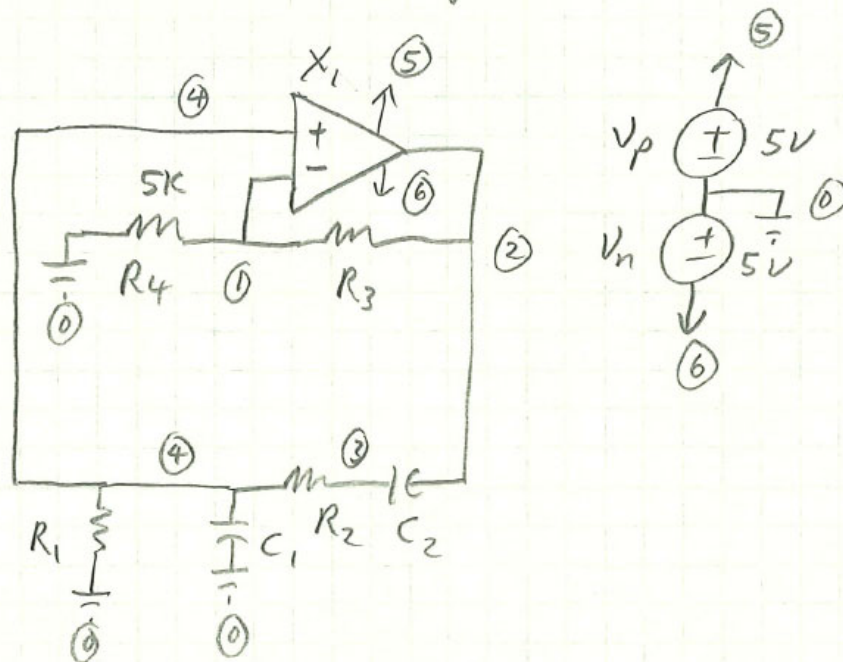 X₁
⑤
④
+
−
⑥
5K
R4
①
R3
②
⓪
④
③
R₁
C₁
R₂
C₂
⓪
⓪
⑤
Vp
+
−
5V
⓪
Vn
+
−
5V
⑥